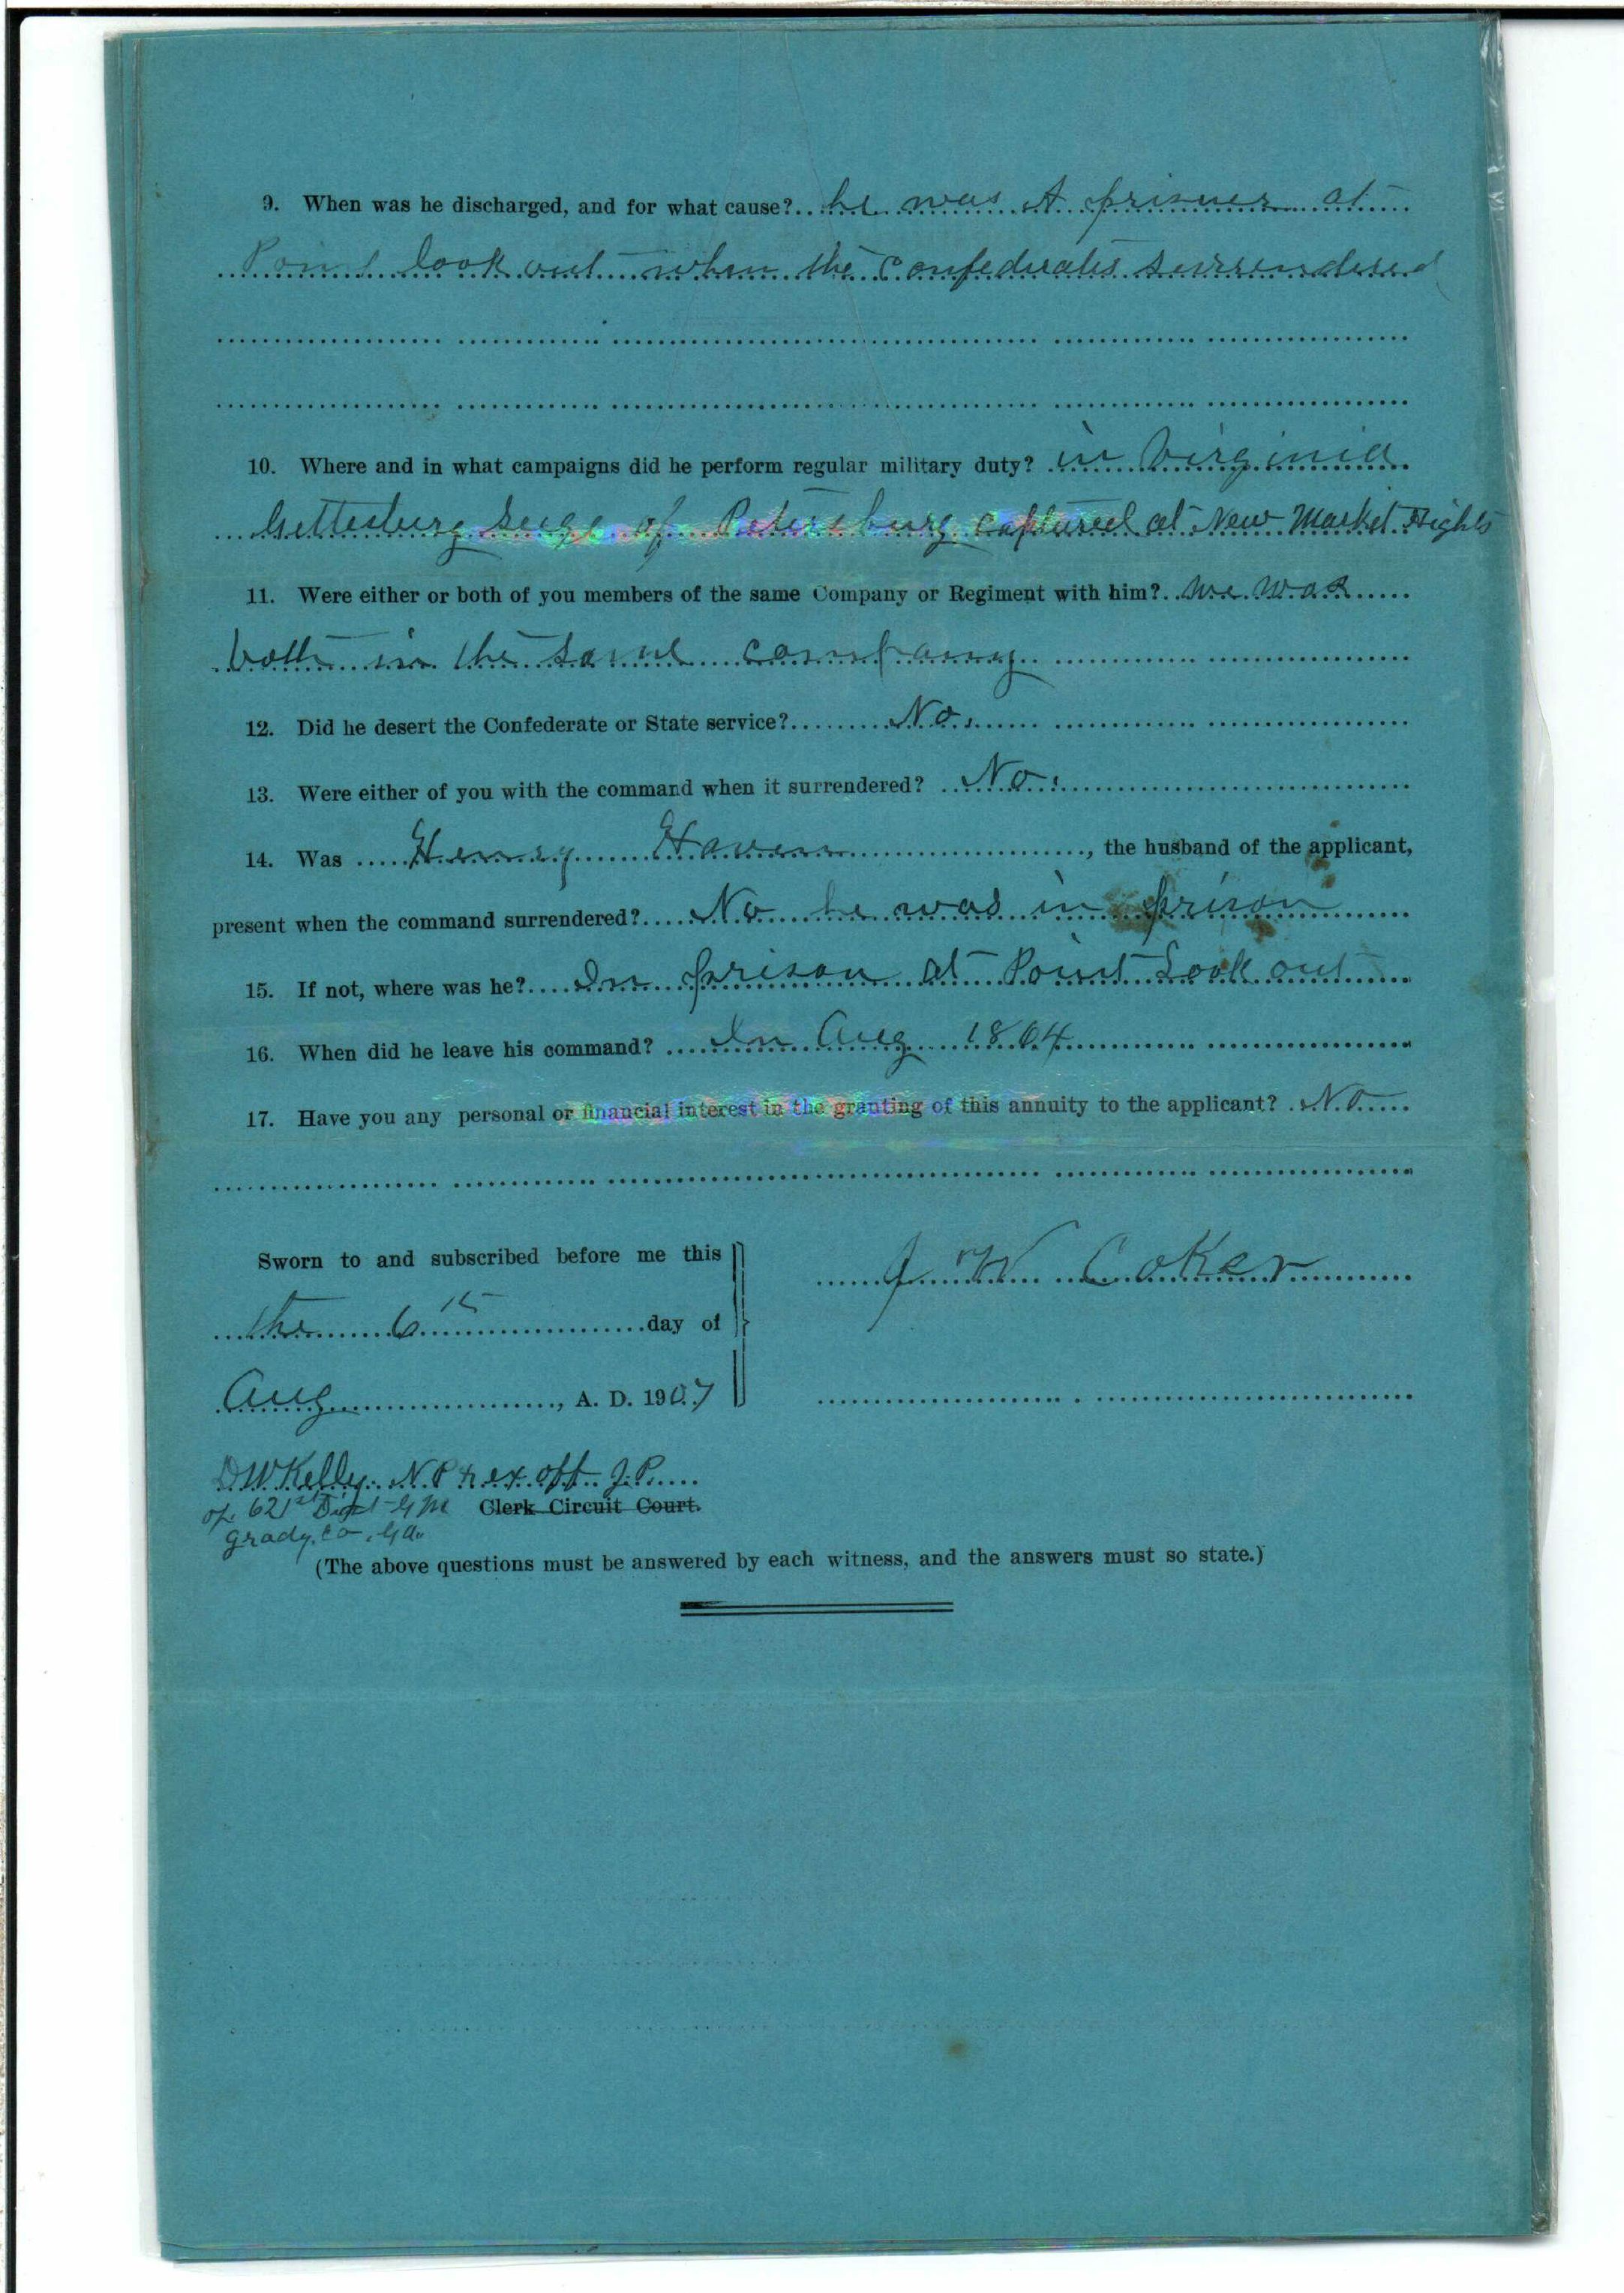 9. When was he discharged, and for what cause? he was A prisner at
Point look out when the confederates surrendered
10. Where and in what campaigns did he perform regular military duty? in Virginia
Gettesburg Seige of Petersburg captured at New Market Hights
11. Were either or both of you members of the same Company or Regiment with him? we was
both in the same company
12. Did he desert the Confederate or State service? No.
13. Were either of you with the command when it surrendered? No.
14. Was Henry , the husband of the applicant,
present when the command surrendered? No he was in prison
15. If not, where was he? In prison at Point Look out
16. When did he leave his command? In Aug 1864
17. Have you any personal or financial interest in the granting of this annuity to the applicant? No
Sworn to and subscribed before me this
J W Coker
the 6th day of
Aug , A. D. 1907
DW Kelly N P & ex off J. P.
of 621st Dist G M Clerk Circuit Court.
Grady, Co, Ga.
(The above questions must be answered by each witness, and the answers must so state.)